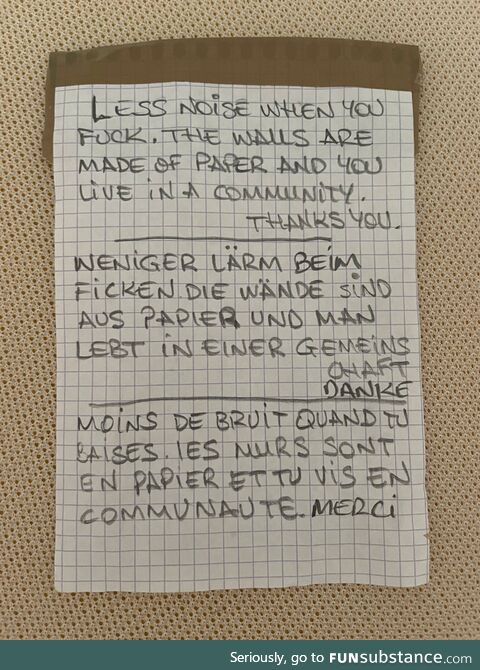 LESS NOISE WHEN YOU
FUCK. THE WALLS ARE
MADE OF PAPER AND YOU
LIVE IN A COMMUNITY.
THANKS YOU.
WENIGER LÄRM BEIM
FICKEN. DIE WÄNDE SIND
AUS PAPIER UND MAN
LEBT IN EINER GEMEINS
CHAFT
DANKE
MOINS DE BRUIT QUAND TU
BAISES. LES MURS SONT
EN PAPIER ET TU VIS EN
COMMUNAUTE. MERCI
Seriously, go to FUNsubstance.com